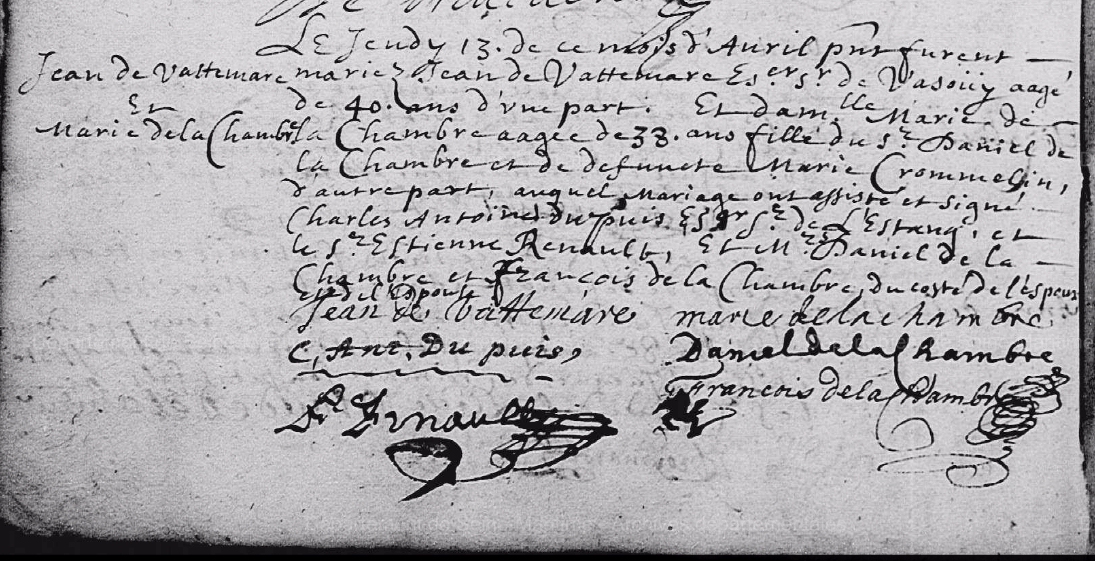 Le Jeudy 13. de ce mois d'Auril pnt furent
Jean de Vattemare
Et
Marie de la Chambre
mariez Jean de Vattemare Eser sr de Vasoüy aagé
de 40. ans d'vne part. Et damlle Marie de
la Chambre aagee de 38. ans fille du sr Daniel de
la Chambre et de defuncte Marie Crommelin,
d'autre part, auquel Mariage ont assisté et signé
Charles Antoine Du puis Esser Sr de L'Estang, et
le sr Estienne Renault, Et Mrs Daniel de la
Chambre et François de la Chambre, du costé de l'espoux
et de l'Epouse
Jean de Vattemare marie de la chambre
C, Ant. Du puis, Daniel de la Chambre
François de la Chambre